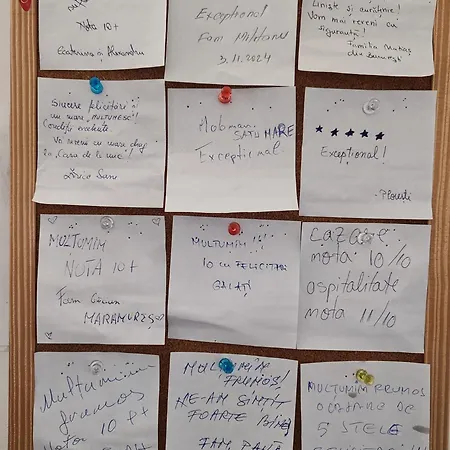 Nota 10+
Ecaterina și Alexandru
Excepțional
Fam
3.11.2024
Liniște și curățenie!
Vom mai reveni cu
siguranță!
Familia
din București
Sincere felicitări și
un mare "MULȚUMESC"!
Condiții excelente.
Vă reveni cu mare drag
în "Casa de la
SATU MARE
Excepțional
★ ★ ★ ★ ★
Excepțional!
- Ploiești
MULȚUMIM
NOTA 10+
Fam
MARAMUREȘ
MULȚUMIM !!
10 cu FELICITĂRI
GALAȚI
cazare
nota 10/10
ospitalitate
nota 11/10
Mulțumim
frumos
Nota 10 ++
MULȚUMIM
FRUMOS!
NE-AM SIMȚIT
FOARTE BINE!
FAM.
MULȚUMIM FRUMOS
O CAZARE DE
5 STELE